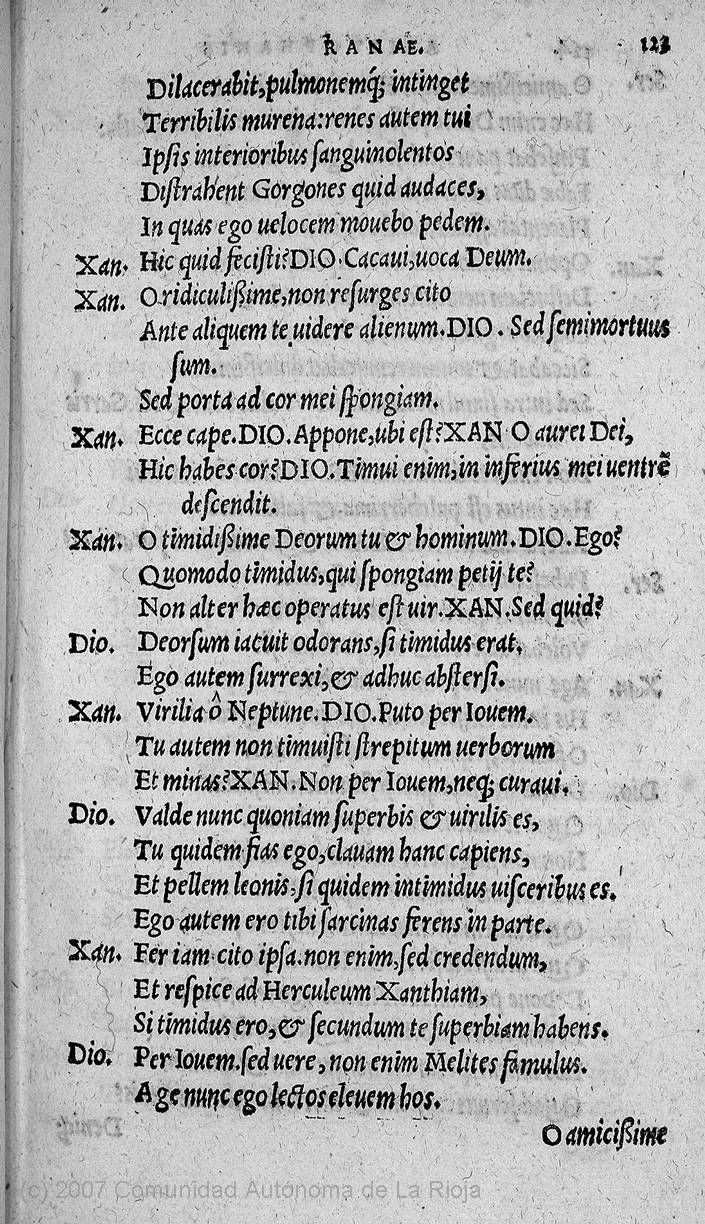 RANAE. 123
Dilacerabit, pulmonemq́; intinget
Terribilis murena: renes autem tui
Ipsis interioribus sanguinolentos
Diſtrahent Gorgones quid audaces,
In quas ego uelocem mouebo pedem.
Xan. Hic quid feciſti? DIO. Cacaui, uoca Deum.
Xan. O ridiculißime, non reſurges cito
Ante aliquem te uidere alienum. DIO. Sed ſemimortuus
ſum.
Sed porta ad cor mei ſpongiam.
Xan. Ecce cape. DIO. Appone, ubi eſt? XAN O aurei Dei,
Hic habes cor? DIO. Timui enim, in inferius mei uentrē
deſcendit.
Xan. O timidißime Deorum tu & hominum. DIO. Ego?
Quomodo timidus, qui ſpongiam petij te?
Non alter hæc operatus eſt uir. XAN. Sed quid?
Dio. Deorſum iacuit odorans, ſi timidus erat.
Ego autem ſurrexi, & adhuc abſterſi.
Xan. Virilia ô Neptune. DIO. Puto per Iouem.
Tu autem non timuiſti ſtrepitum uerborum
Et minas? XAN. Non per Iouem, neq; curaui.
Dio. Valde nunc quoniam ſuperbis & uirilis es,
Tu quidem fias ego, clauam hanc capiens,
Et pellem leonis, ſi quidem intimidus uiſceribus es.
Ego autem ero tibi ſarcinas ferens in parte.
Xan. Fer iam cito ipſa. non enim, ſed credendum,
Et reſpice ad Herculeum Xanthiam,
Si timidus ero, & ſecundum te ſuperbiam habens.
Dio. Per Iouem. ſed uere, non enim Melites famulus.
Age nunc ego lectos eleuem hos.
O amicißime
(c) 2007 Comunidad Autónoma de La Rioja